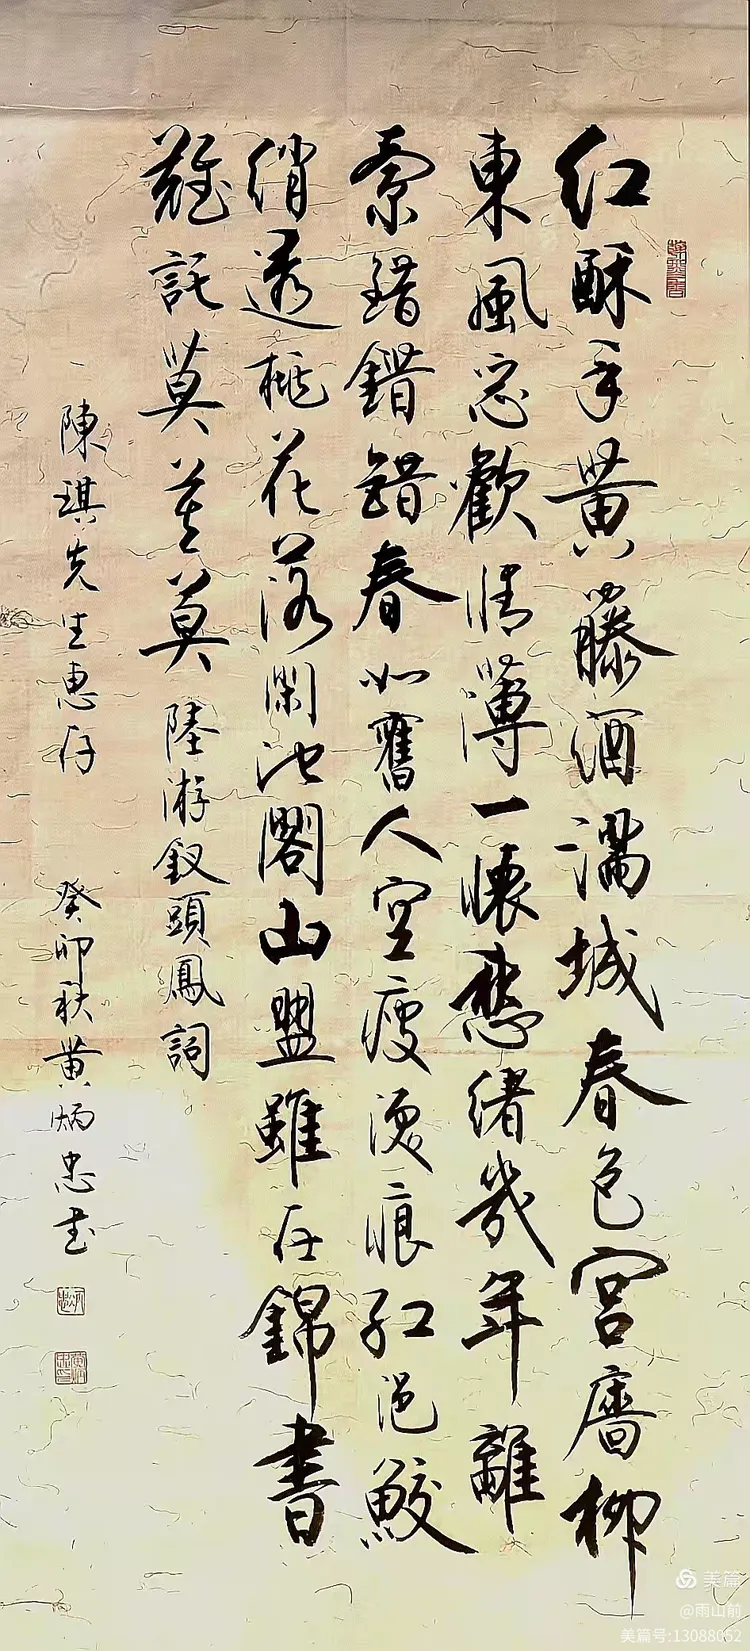 红酥手黄藤酒滿城春色宫牆柳
東風惡歡情薄一懷愁緒幾年離
索錯錯錯春如舊人空瘦淚痕红浥鮫
綃透桃花落閑池閣山盟雖在錦書
難託莫莫莫 陸游釵頭鳳詞
陳琪先生惠存 癸卯秋黄炳忠書
美篇
@雨山前
美篇号:13088052